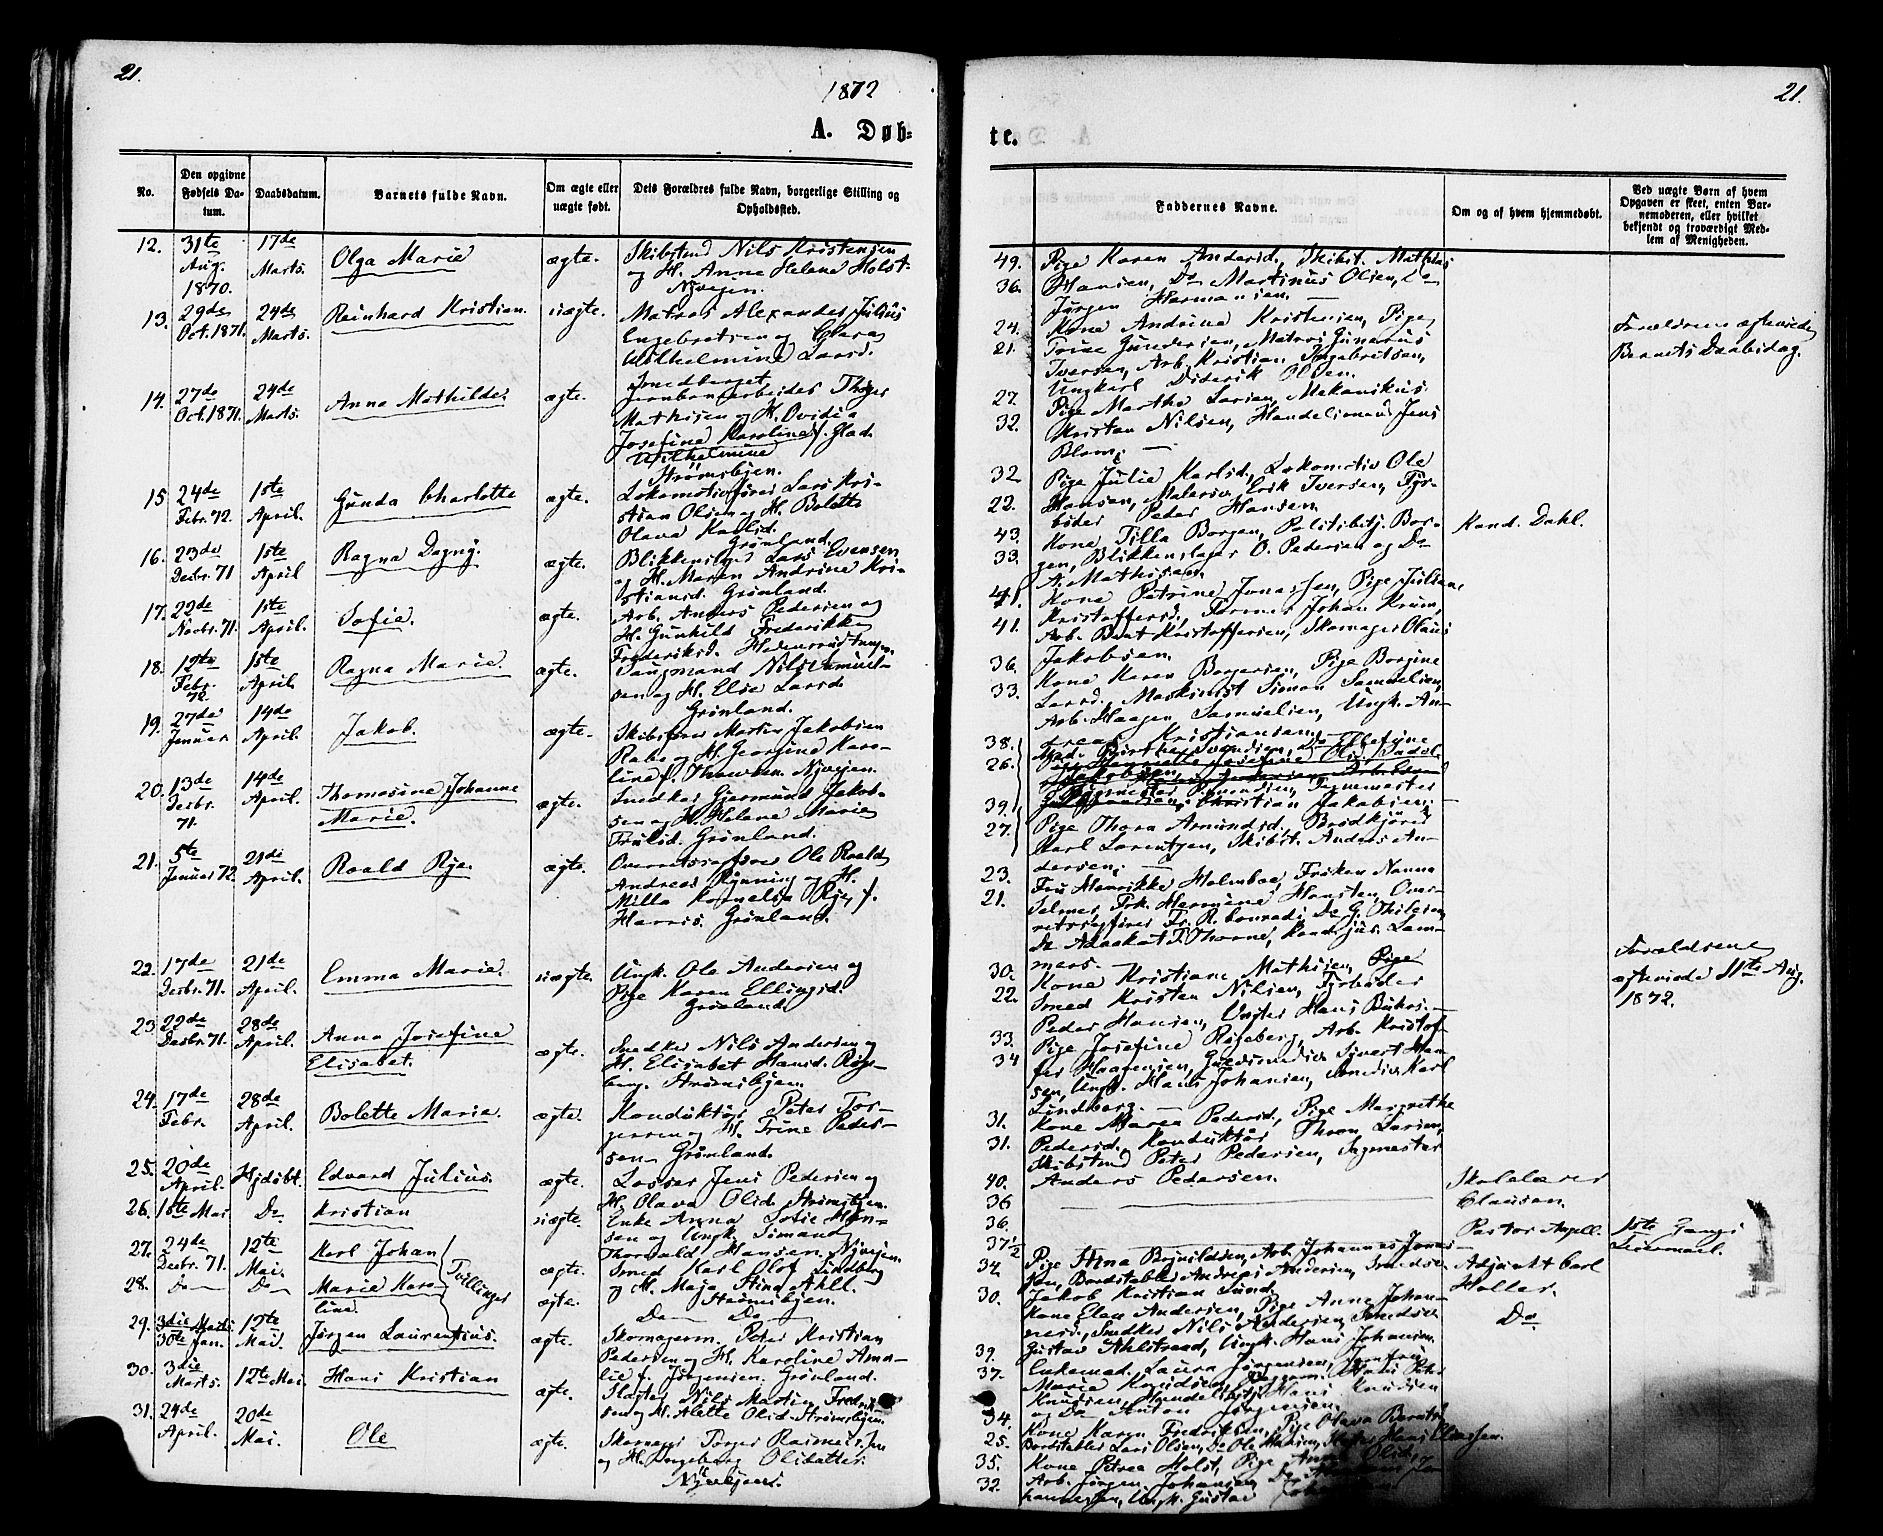 21.
1872
A. Døb-
No.
Den opgivne Fødsels Datum.
Daabsdatum.
Barnets fulde Navn.
Om ægte eller uægte født.
Dets Forældres fulde Navn, borgerlige Stilling og Opholdssted.
12.
31te Aug. 1870.
17de Marts.
Olga Marie
ægte.
Skibstmd Nils Kristensen
og H. Anne Helene Holst.
Nyvejen.
13.
29de Oct. 1871.
24de Marts.
Reinhard Kristian.
uægte.
Matros Alexander Julius
Engebretsen og Clara
Wilhelmine Larsd.
14.
27de Oct. 1871.
24de Marts.
Anna Mathilde.
ægte.
Jernbanearbeider Thøger
Mathisen og H. Ovidia
Josefine Karoline f. Glad.
Wilhelmine
Strømsbyen.
15
24de Febr. 72.
1ste April.
Gunda Charlotte
ægte.
Lokomotivfører Lars Kri-
stian Olsen og H. Bolette
Olava Karlsd.
Grønland.
16.
23de Decbr. 71
1ste April
Ragna Dagny.
ægte.
Blikkenslager Lars Evensen
og H. Maren Andrine Kri-
stiansd. Grønland.
17.
22de Novbr. 71.
1ste April.
Sofie.
ægte.
Arb. Anders Pedersen og
H. Gunhild Frederikke
Frederiksd.
18.
12te Febr. 72.
1ste April.
Ragna Marie.
ægte.
Laugmand Nils Samuel-
sen og H. Elise Larsd.
Grønland.
19.
27de Januar.
14de April.
Jakob.
ægte.
Skibsfører Morten Jakobsen
Rabe og H. Georgine Karo-
line f. Thoresen. Nyvejen.
20.
13de Decbr. 71.
14de April.
Thomasine Johanne
Marie.
ægte.
Snedker Gjermund Jakob-
sen og H. Helene Marie
Trulsd. Grønland.
21.
5te Januar 72.
21de April.
Roald Rye.
ægte.
Overretssagfører Ole Roald
Andreas Rynning og H.
Milla Kornelia Rye f.
Harris. Grønland.
22.
17de Decbr. 71.
21de April.
Emma Marie.
uægte.
Ungk. Ole Andersen og
Pige Karen Ellingsd.
Grønland
23.
22de Decbr. 71.
28de April.
Anna Josefine
Elisabet.
ægte.
Snedker Nils Andersen og
H. Elisabet Hansd. Røgeberg. Strømsbyen.
24.
17de Febr.
28de April.
Bolette Marie.
ægte.
Konduktør Peter Tor-
gersen og H. Trine Peder-
sen Grønland.
25.
20de April.
Hjdøbt.
Edvard Julius.
ægte.
Losser Jens Pedersen og
H. Olava Olsd. Strømsbyen.
26.
1ste Mai
Do
Kristian
uægte.
Enke Anna Sofie Han-
sen og Ungk. Sømand
Thorvald Hansen. Nyvejen.
27.
24de Decbr. 71.
12te Mai.
Karl Johan
Tvillinger
ægte.
Smed Karl Olof Lindberg
og H. Maja Stina Ahll.
Strømsbyen.
28.
Do
Do
Marie Karo-
line
ægte.
Do Do
29.
3die Marts
30te Jan.
12te Mai.
Jørgen Laurentius.
ægte.
Skomagerm. Peter Kristian
Pedersen og H. Karoline Ama-
lie f. Jørgensen. Grønland.
30.
3die Marts.
12te Mai.
Hans Kristian
ægte.
Slagter Nils Martin Fredrik-
sen og H. Alette Olsd. Strømsbyen.
31.
24de April.
20de Mai.
Ole
ægte.
Skomager Torger Rasmussen
og H. Ingeborg Olsdatter.
21.
te.
Faddernes Navne.
Om og af hvem hjemmedøbt.
Ved uægte Børn af hvem Opgaven er skeet, enten Barnemoderen, eller hvilket bekjendt og troværdigt Medlem af Menigheden.
49.
36.
Pige Karen Andersd., Skibst. Mathias
Hansen, Do Martinus Olsen, Do
Jørgen Hermansen.
24.
21.
Kone Andrine Kristensen, Pige
Trine Gundersen, Matros Gunerius
Iversen, Arb. Kristian Ingebretsen,
Ungkarl Diderik Olsen.
Forældrene ægteviede
Barnets Daabsdag.
27.
32.
Pige Marthe Larsen, Mekanikus
Kristen Nilsen, Handelsmand Jens
Blom.
32
22.
Pige Julie Karlsd., Lokomotiv Ole
Hansen, Malersv. Erik Iversen, Fyr-
bøder Peder Hansen.
43.
33.
Kone Tilla Borgen, Politibetj. Bor-
gen, Blikkenslager O. Pedersen og Do
A. Mathisen.
Kand. Dahl.
41.
Kone Petrine Jonassen, Pige Juliane
Kristoffersd., Former Johan Krum,
Arb. Bent Kristoffersen, Skomager Olaus
Jakobsen.
36.
33.
Kone Karen Borgersen, Pige Borgine
Larsd. Maskinist Simon Samuelsen,
Arb. Haagen Samuelsen, Ungk. An-
dreas Kristiansen.
38.
26.
39.
27.
Pige Thora Amundsd., Brødkjører
Karl Lorentzen, Skibst. Anders An-
dersen.
23.
21.
Fru Henrikke Holmboe, Frøken Nanna
Selmer, Frk. Hermine Hansten, Over-
retssagfører Fr. R. Conradi, Do G. Thilesen,
Do Advokat F. Thorne, Kand. jus. Lam-
mers.
30.
22.
Kone Kristiane Mathisen, Pige
Smed Kristen Nilsen, Fyrbøder
Peder Hansen,
Forældrene
ægteviede 11te Aug.
1872.
33.
34
Pige Josefine Røgeberg, Arb. Kristof-
fer Haagensen, Guldsmedsv. Sivert Han-
sen, Ungk. Hans Johansen, Smedsv. Karl
Lindberg.
31.
31.
Kone Maren Pedersd., Pige Margrethe
Pedersd., Konduktør Thron Larsen,
Skibstmd Peter Pedersen, Sagmester
Anders Pedersen.
40.
36
Skolelærer
Clausen.
36.
37½
Pastor Apell.
1ste Gangs
Leiermaal.
34
30.
Pige Stina Brynildsen, Arb. Johannes Jonas-
sen, Bordstabler Andreas Andersen, Smedsv.
Jakob Kristian Lund.
Adjunkt Carl
Holler.
Kone Elen Andersen, Pige Anne Johan-
nesd., Snedker Nils Andersen, Smedsv.
Gustav Ahlstrand, Ungk. Hans Johansen.
Do
39.
37.
Enkemad. Laura Jørgensen, Jomfru
Marie Knudsen,
Knudsen,
og Do Anton Jørgensen.
34.
25.
Kone Karen Fredriksen, Pige Olava Berntsd.
Bordstabler Lars Olsen, Do Ole Hansen,
35.
32.
Kone Petrea Holst, Pige Anne Olsd.,
Arb. Jørgen Johansen,
hannessen, Ungk. Gustav